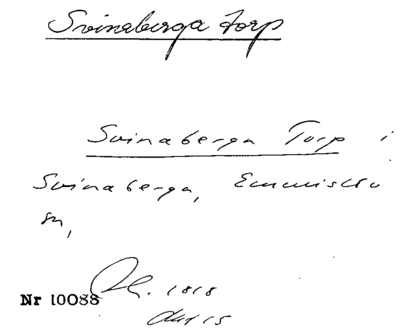 Svinaberga torp
Svinaberga Torp i
Svinaberga, Emmislöv
sn,
1818
Nr 10088